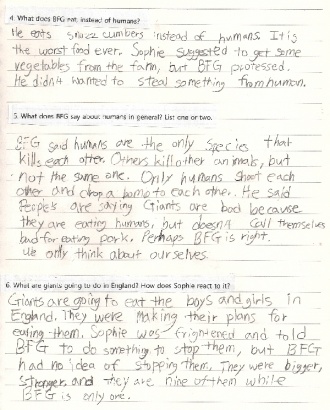 4. What does BFG eat, instead of humans?
He eats snozzcumbers instead of humans. It is
the worst food ever. Sophie suggested to get some
vegetables from the farm, but BFG professed.
He didn't wanted to steal something from human.
5. What does BFG say about humans in general? List one or two.
BFG said humans are the only species that
kills each other. Others kill other animals, but
not the same one. Only humans shoot each
other and drop a bomb to each other. He said
People's are saying Giants are bad because
they are eating humans, but doesn't call themselves
bad for eating pork. Perhaps BFG is right.
We only think about ourselves.
6. What are giants going to do in England? How does Sophie react to it?
Giants are going to eat the boys and girls in
England. They were making their plans for
eating them. Sophie was frightened and told
BFG to do something to stop them, but BFG
had no idea of stopping them. They were bigger,
stronger, and they are nine of them while
BFG is only one.